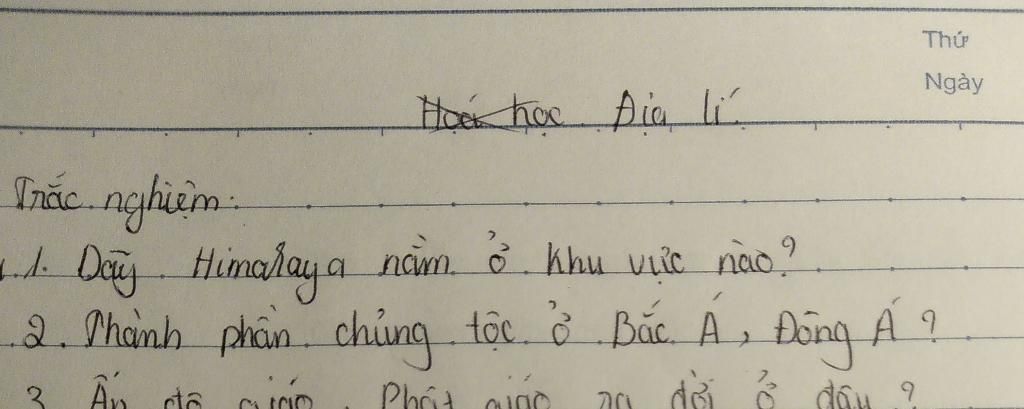 Thứ
Ngày
Hoá học Địa lí
Trắc nghiệm:
1. Dãy Himalaya nằm ở khu vực nào?
2. Thành phần chủng tộc ở Bắc Á, Đông Á?
3. Ấn độ giáo, Phật giáo ra đời ở đâu?